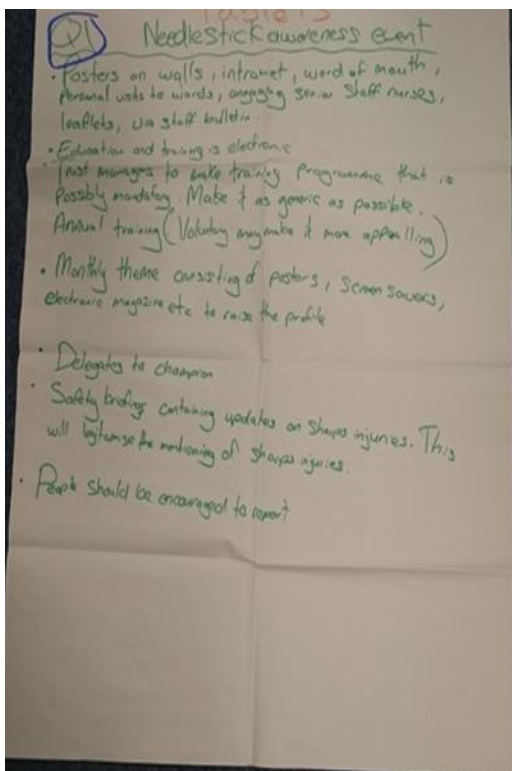 Table 3
Q1 Needlestick awareness event
• Posters on walls, intranet, word of mouth,
Personal visits to wards, engaging senior staff nurses,
leaflets, via staff bulletin.
• Education and training is electronic
Trust managers to make training programme that is
Possibly mandatory. Make it as generic as possible.
Annual training (Voluntary may make it more appealling)
• Monthly theme consisting of posters, screen savers,
electronic magazine etc to raise the profile
• Delegates to champion
• Safety briefings containing updates on sharps injuries. This
will legitimise the mentioning of sharps injuries.
• People should be encouraged to report